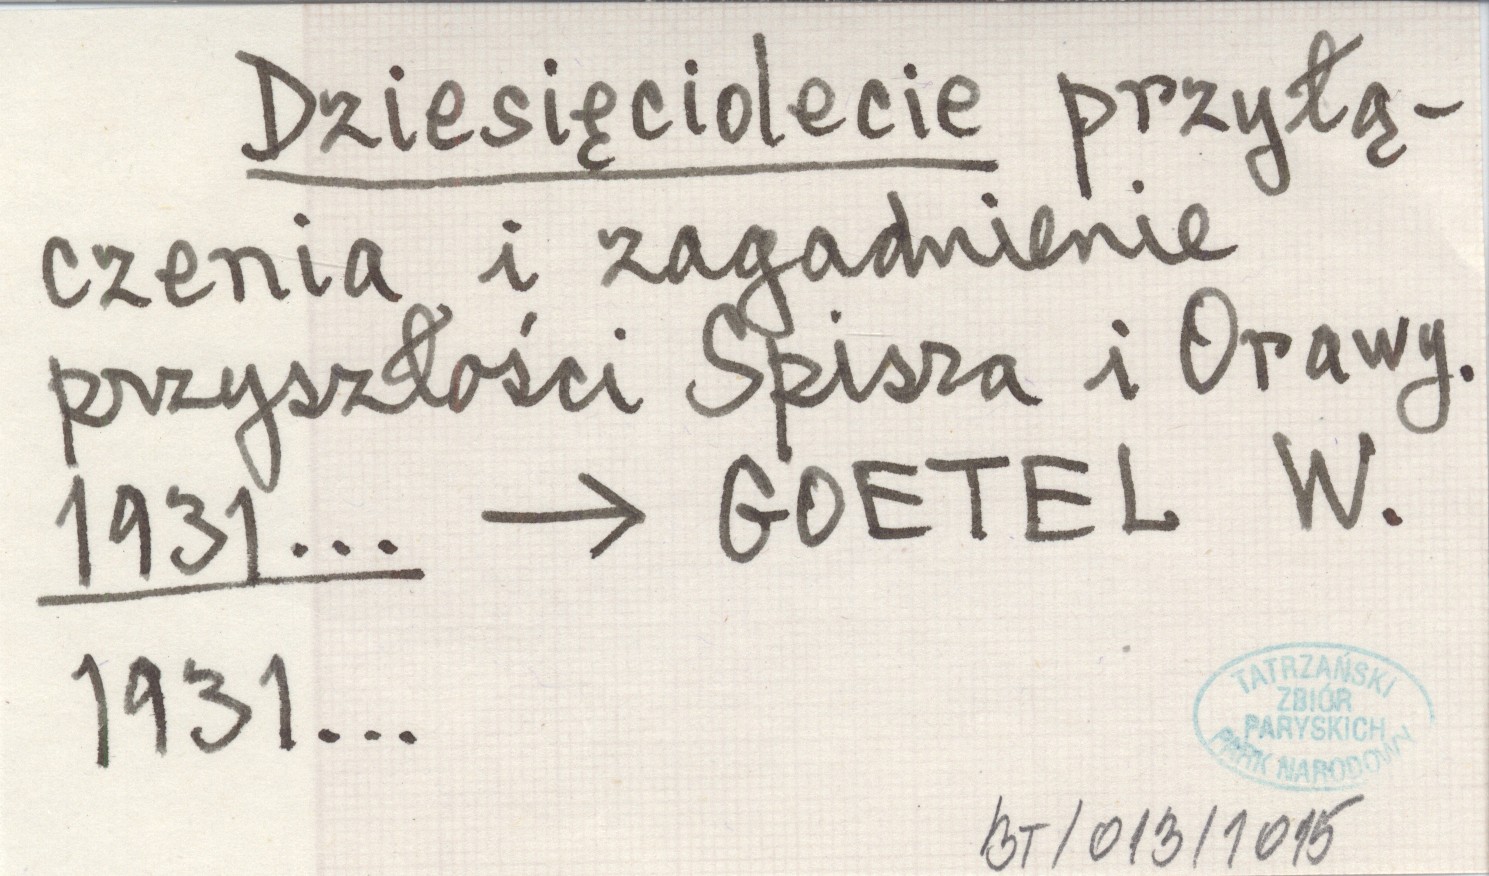 Dziesięciolecie przyłą-
czenia i zagadnienie
przyszłości Spisza i Orawy.
1931... → GOETEL W.
1931...
TATRZAŃSKI
ZBIÓR
PARYSKICH
PARK NARODOWY
BT/013/1015